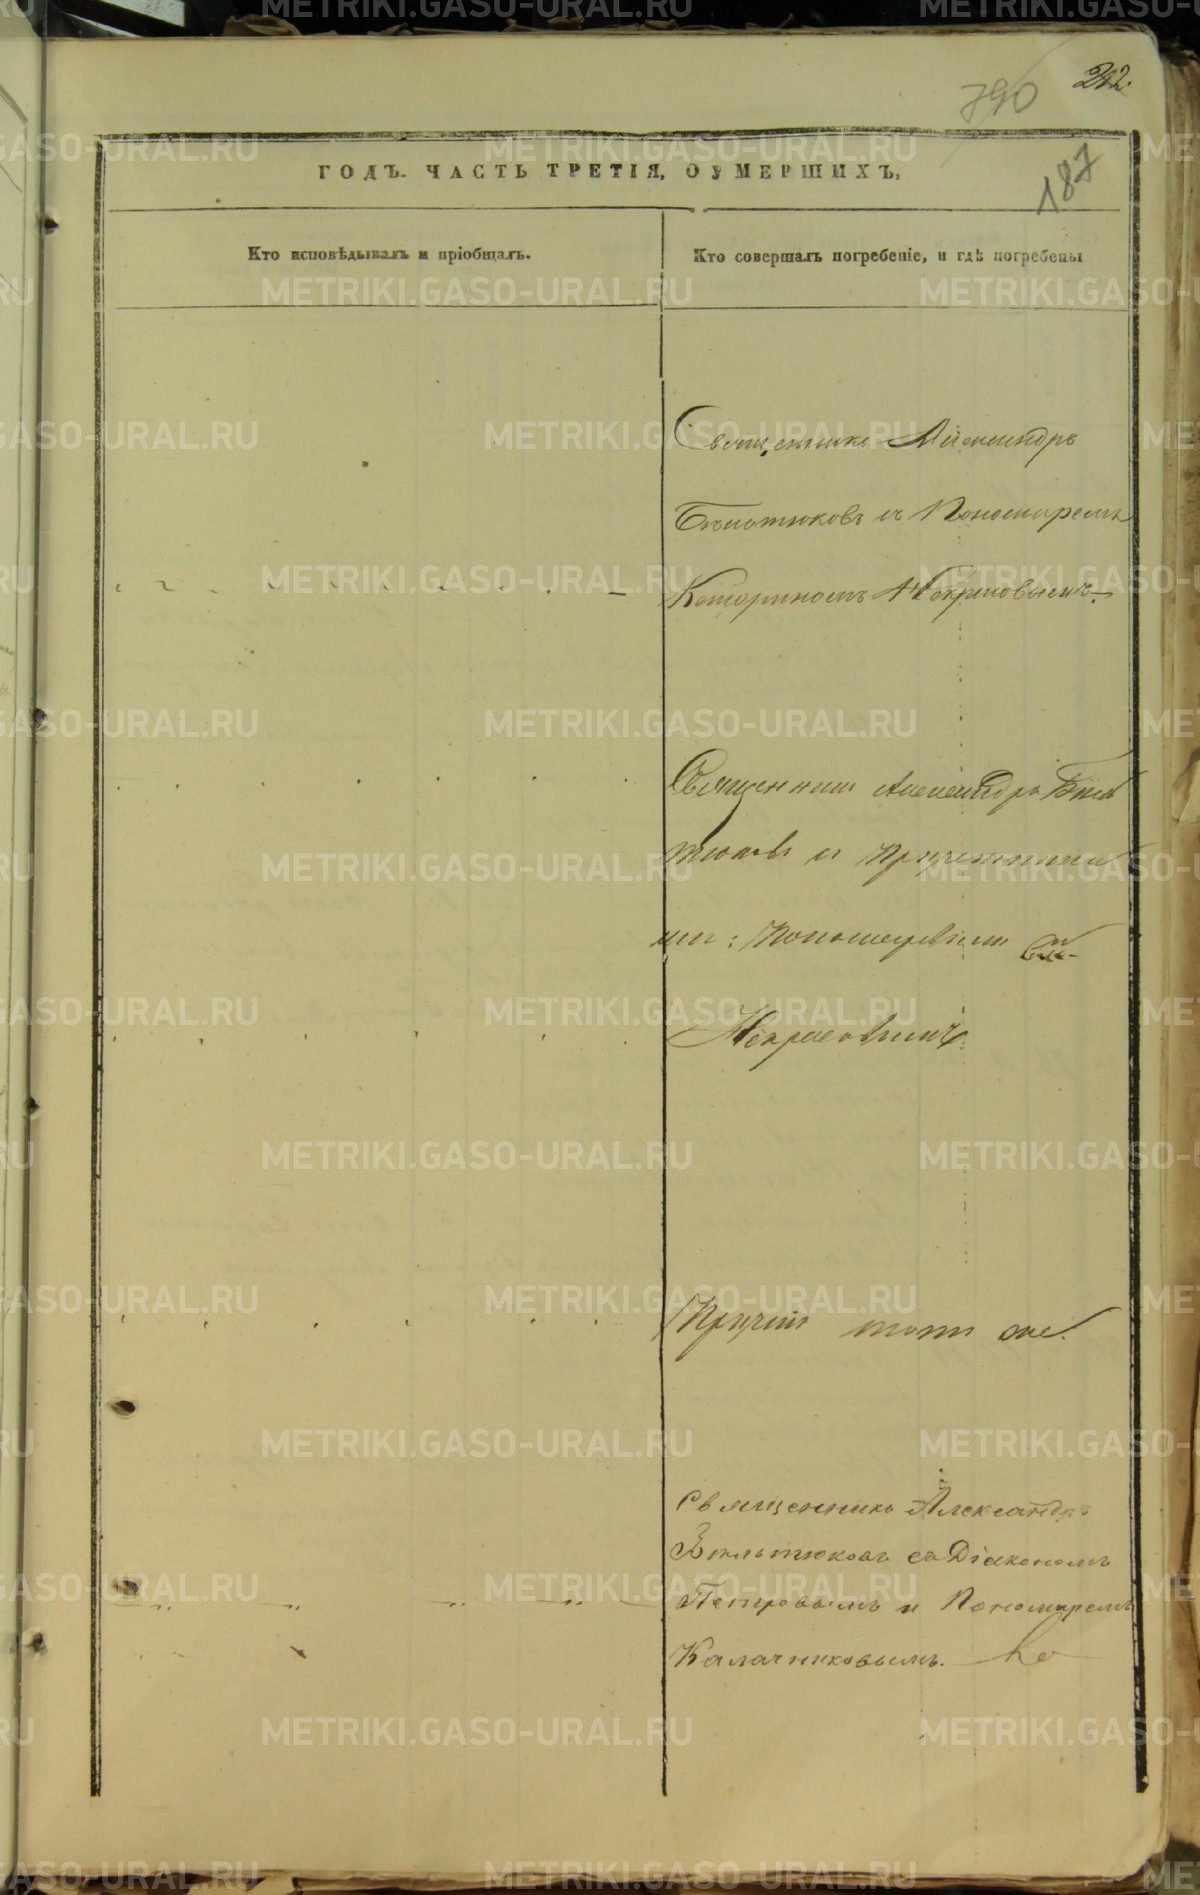 790
202.
187
ГОДЪ. ЧАСТЬ ТРЕТІЯ, О УМЕРШИХЪ,
Кто исповѣдывалъ и пріобщалъ.
Кто совершалъ погребеніе, и гдѣ погребены
Священникъ Александръ
съ Пономаремъ
Некрасовымъ.
Священникъ Александръ
съ Причетника
ми:
Некрасовымъ
Причтъ тотъ же.
Священникъ Александръ
съ Діакономъ
Петровымъ и Пономаремъ
Калачниковымъ.
METRIKI.GASO-URAL.RU